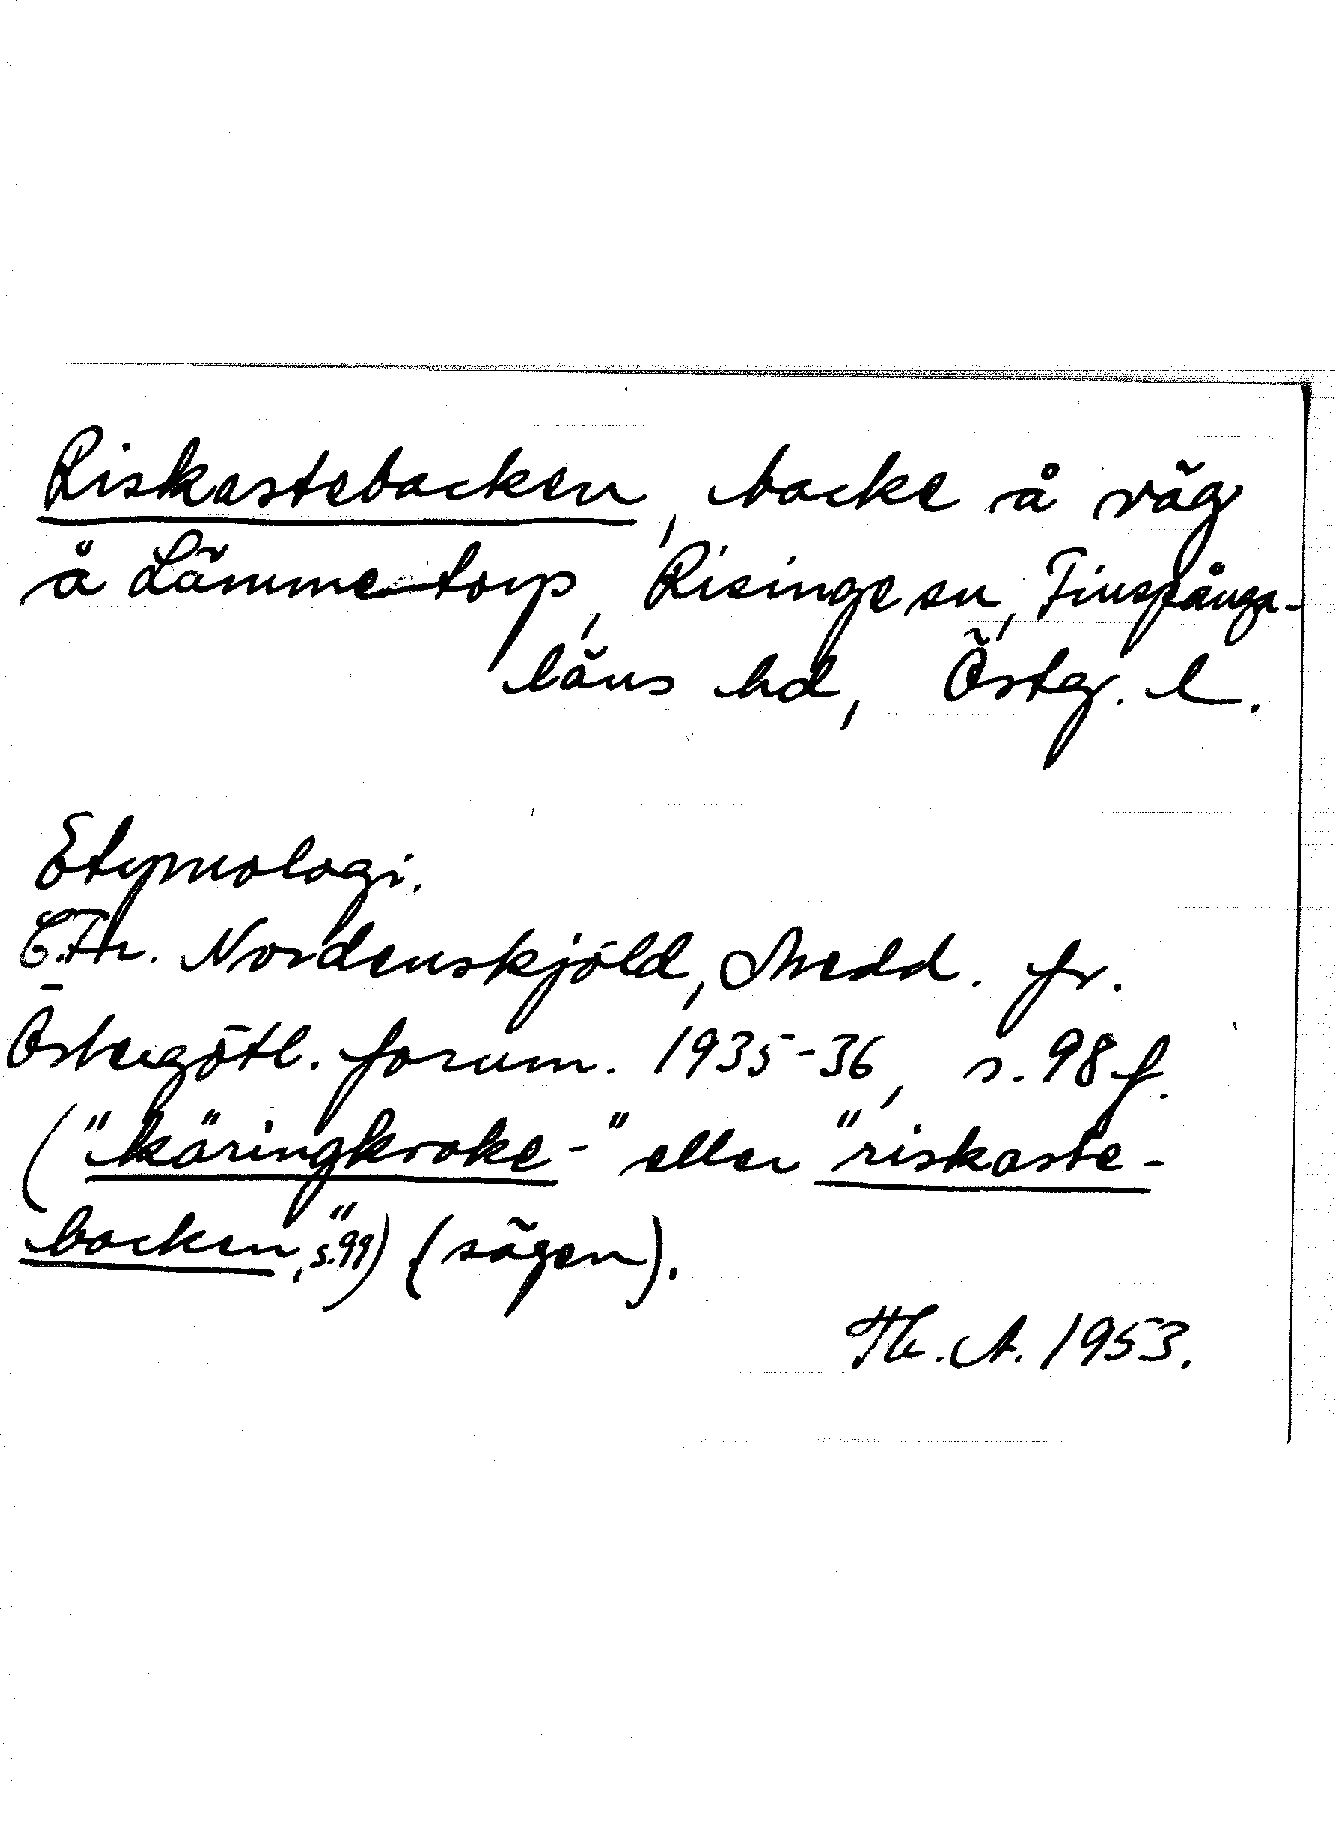 Riskastebacken, backe å väg
å Lämmetorp, Risinge sn, Finspånga-
läns hd, Östg. l.
Etymologi.
C. Fr. Nordenskjöld, Medd. fr.
Östergötl. fornm. 1935-36, s. 98 f.
("käringkroke-" eller "riskaste-
backen", s. 99) (sägen).
Th. A. 1953.